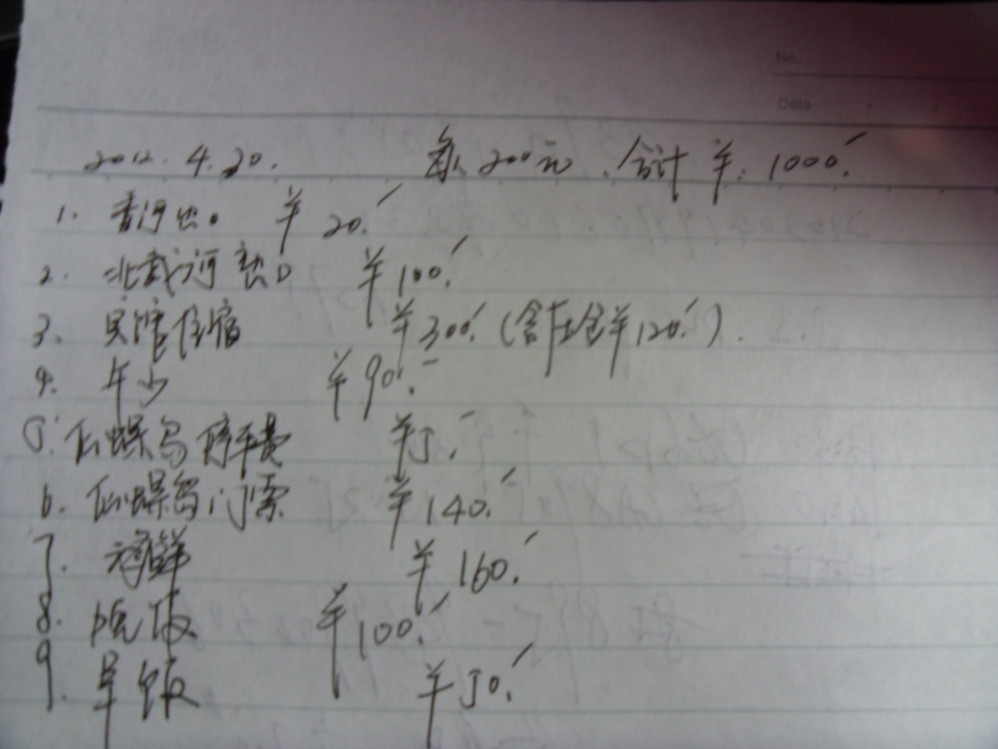 No.
Date
2012.4.20. 每人200元.合计¥:1000.-
1. 香河出口 ¥20.-
2. 北戴河出口 ¥100.-
3. 宾馆住宿 ¥300.-(含压金¥120.-).
4. 午 ¥90.-
5. 仙螺岛停车费 ¥5.-
6. 仙螺岛门票 ¥140.-
7. 海鲜 ¥160.-
8. 晚饭 ¥100.-
9. 早饭 ¥50.-